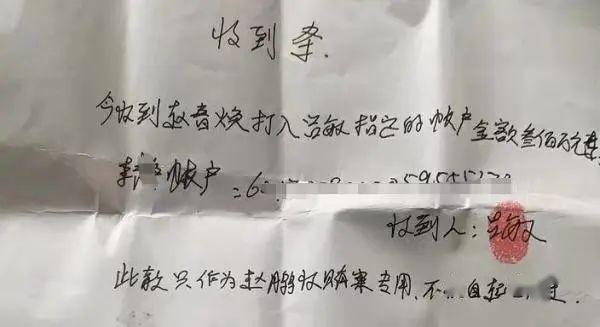 收到条.
今收到赵音焕打入吕敏指定的帐户金额叁佰万元整
帐户:6
收到人:吕敏
此款只作为赵鹏 贿案专用.不 自起